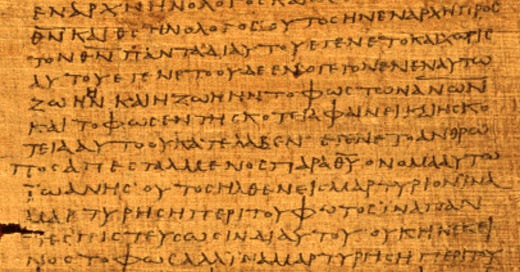 ΕΝΑΡΧΗΗΝΟΛΟΓΟϹΚΑΙ
ΘΝΚΑΙΘϹΗΝΟΛΟΓΟϹΟΥΤΟϹΗΝΕΝΑΡΧΗΠΡΟϹ
ΤΟΝΘΝΠΑΝΤΑΔΙΑΥΤΟΥΕΓΕΝΕΤΟΚΑΙΧΩΡΙϹ
ΑΥΤΟΥΕΓΕΝΕΤΟΟΥΔΕΕΝΟΓΕΓΟΝΕΝΕΝΑΥΤΩ
ΖΩΗΗΝΚΑΙΗΖΩΗΗΝΤΟΦΩϹΤΩΝΑΝΩΝ
ΚΑΙΤΟΦΩϹΕΝΤΗϹΚΟΤΙΑΦΑΙΝΕΙΚΑΙΗϹΚΟ
ΤΕΙΑΑΥΤΟΟΥΚΑΤΕΛΑΒΕΝ ΕΓΕΝΕΤΟΑΝΘΡΩ
ΠΟϹΑΠΕϹΤΑΛΜΕΝΟϹΠΑΡΑΘΥΟΝΟΜΑΑΥΤΩ
ΙΩΑΝΗϹΟΥΤΟϹΗΛΘΕΝΕΙϹΜΑΡΤΥΡΙΟΝΙΝΑ
ΜΑΡΤΥΡΗϹΗΠΕΡΙΤΟΥΦΩΤΟϹΙΝΑΠΑΝ
ΤΕϹΠΙϹΤΕΥϹΩϹΙΝΔΙΑΥΤΟΥΟΥΚΗΝΕΚΕΙ
ΝΟϹΤΟΦΩϹΑΛΛΙΝΑΜΑΡΤΥΡΗϹΗΠΕΡΙΤΟΥ